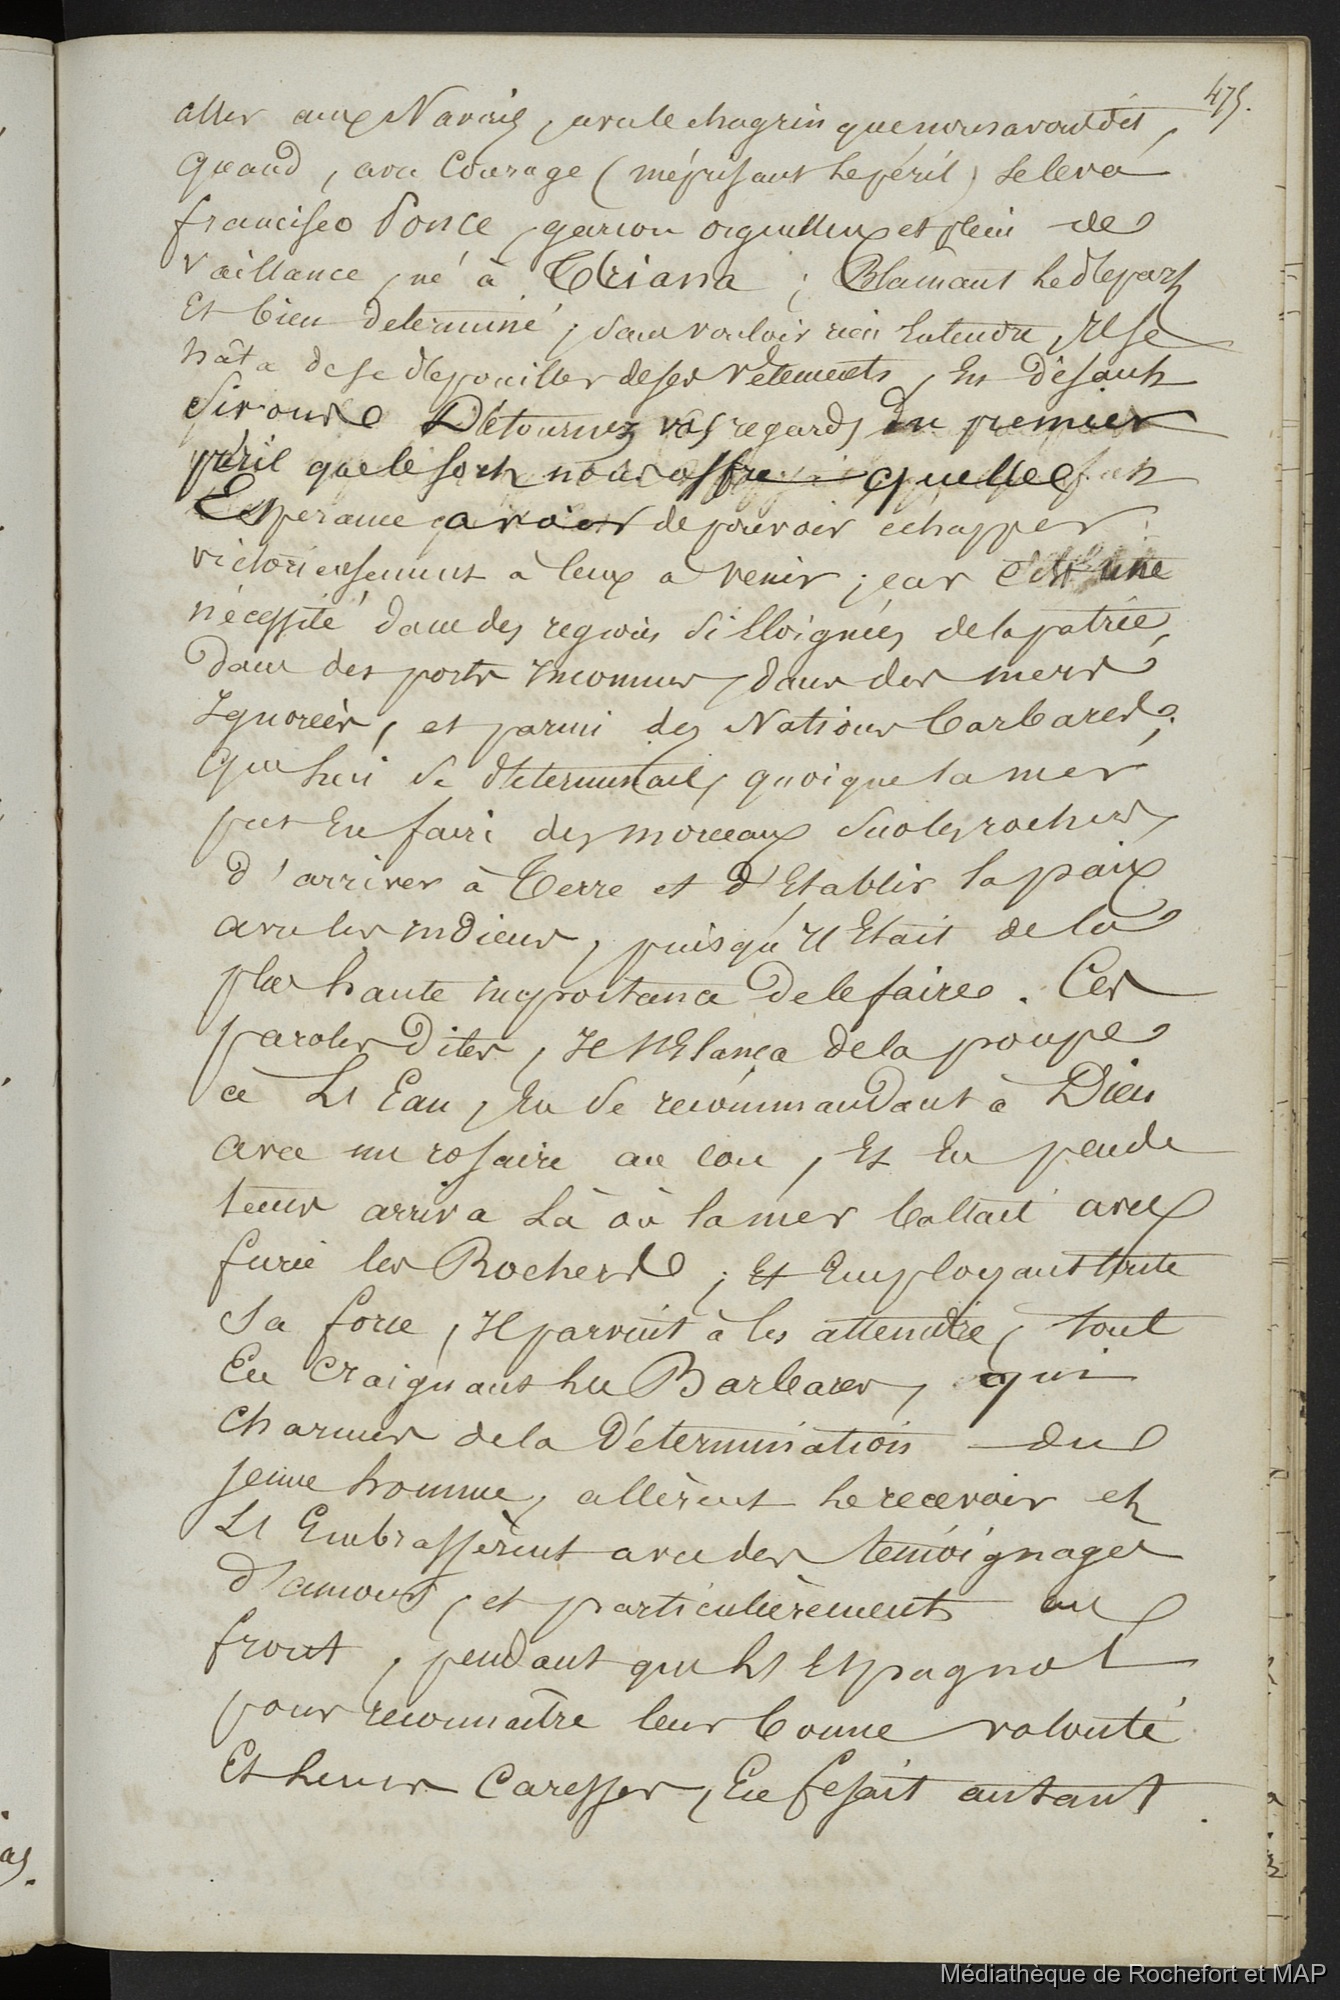 475.
aller aux Navires, avec le chagrin que nous avons dit,
quand, avec Courage (méprisant le péril) se leva
francisco Ponce, garcon orguilleux et plein de
vaillance, né à Triana ; Blamant le départ
Et bien determiné, sans vouloir rien Entendre, Il se
hâta de se dépouiller de ses vêtements, En disant
Si vous Détournez vos regards du premier
péril que le sort nous offre quelle
Espérance avoir de pouvoir echapper
victorieusement à Ceux a venir ; car C'est une
nécessité dans des regions si Eloignées de la patrie,
dans des ports Inconnus, dans des mers
Ignorées, et parmi des Nations barbares ;
Que lui se déterminait, quoique la mer
put En faire des morceaux sur les rochers,
d'arriver à Terre et d'Etablir la paix
avec les indiens, puisqu'Il Etait de la
plus haute importance de le faire. Ces
paroles Dites, Il s'Elança de la poupe
à L'Eau, En se recommandant à Dieu
avec un rosaire au cou, Et En peu de
temps arriva Là où la mer battait avec
furie les Rochers ; Et Employant toute
Sa force, Il parvint à les atteindre, tout
En Craignant les Barbares, qui
Charmés de la Détermination du
jeune homme, allèrent le recevoir et
L'Embrassèrent avec des témoignages
d'amour, et particulièrement au
front, pendant que L'Espagnol
pour reconnaître leur bonne volonté
Et leurs Caresses, En fesait autant
as.
Médiathèque de Rochefort et MAP